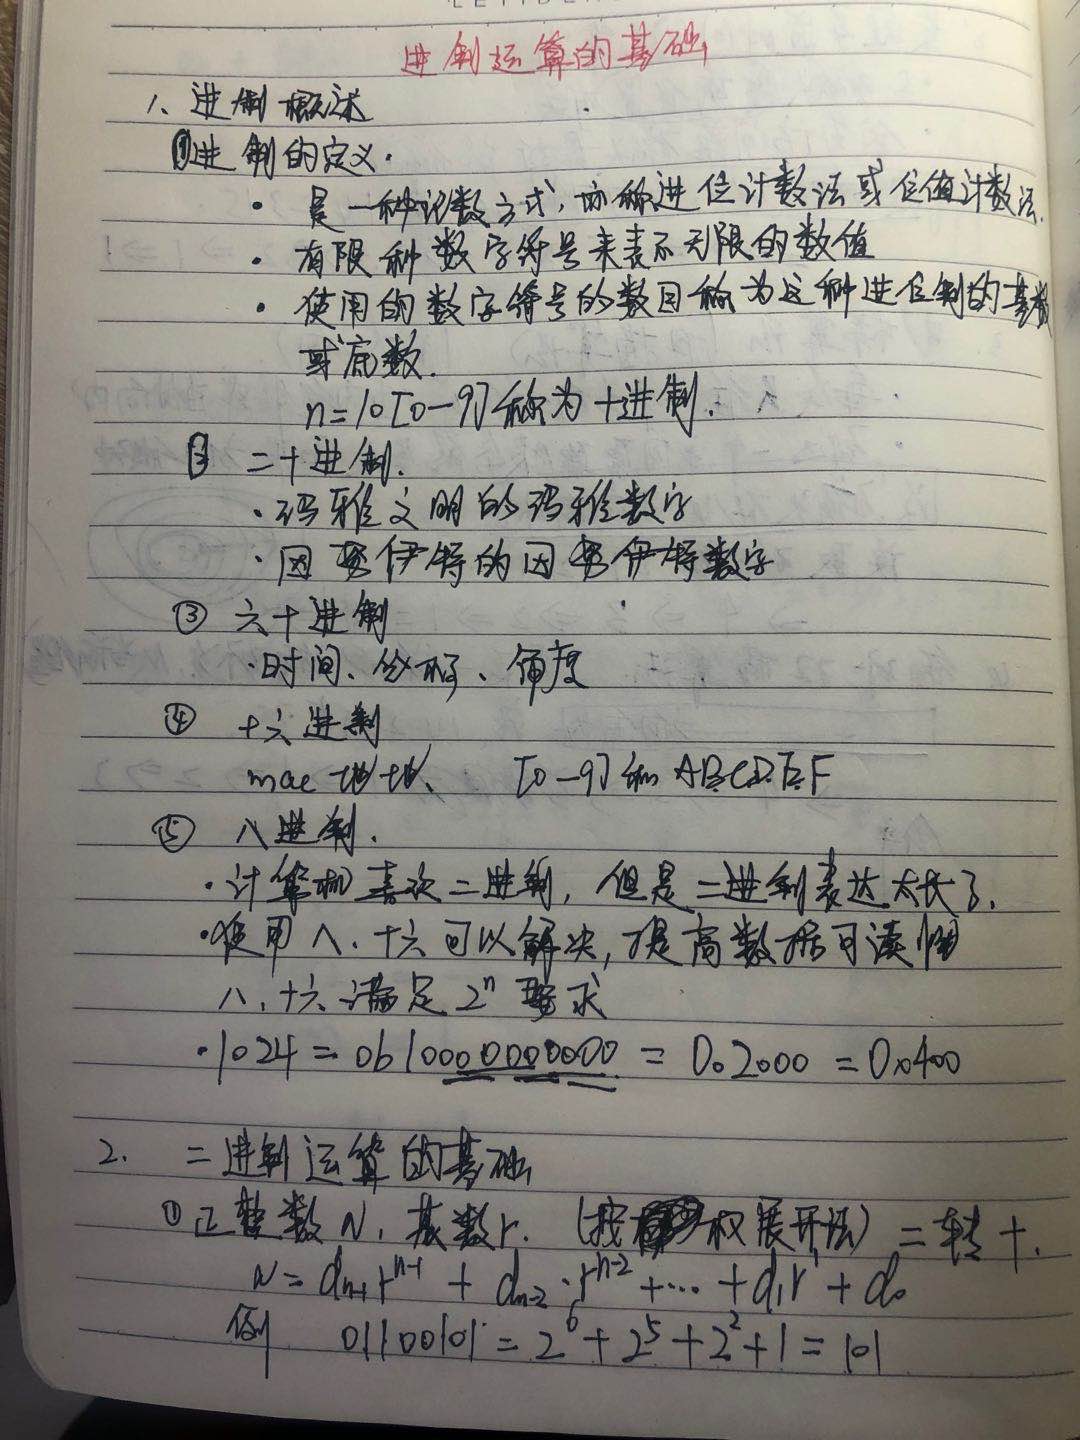 进制运算的基础
1、进制概述
①进制的定义.
· 是一种记数方式,亦称进位计数法或位值计数法.
· 有限种数字符号来表示无限的数值
· 使用的数字符号的数目称为这种进位制的基数
或底数.
n=10[0-9]称为十进制.
② 二十进制.
·玛雅文明的玛雅数字
·因努伊特的因努伊特数字
③ 六十进制
·时间、坐标、角度
④ 十六进制
mac地址、 [0-9]和ABCDEF
⑤ 八进制.
·计算机喜欢二进制,但是二进制表达太长了.
·使用八、十六可以解决,提高数据可读性
八、十六满足2ⁿ要求
·1024=0b10000000000=0o2000=0x400
2. 二进制运算的基础
①正整数N,基数r. (按权展开法)二转十.
N=dₙ₋₁rⁿ⁻¹+dₙ₋₂·rⁿ⁻²+…+d₁r¹+d₀
例 01100101=2⁶+2⁵+2²+1=101